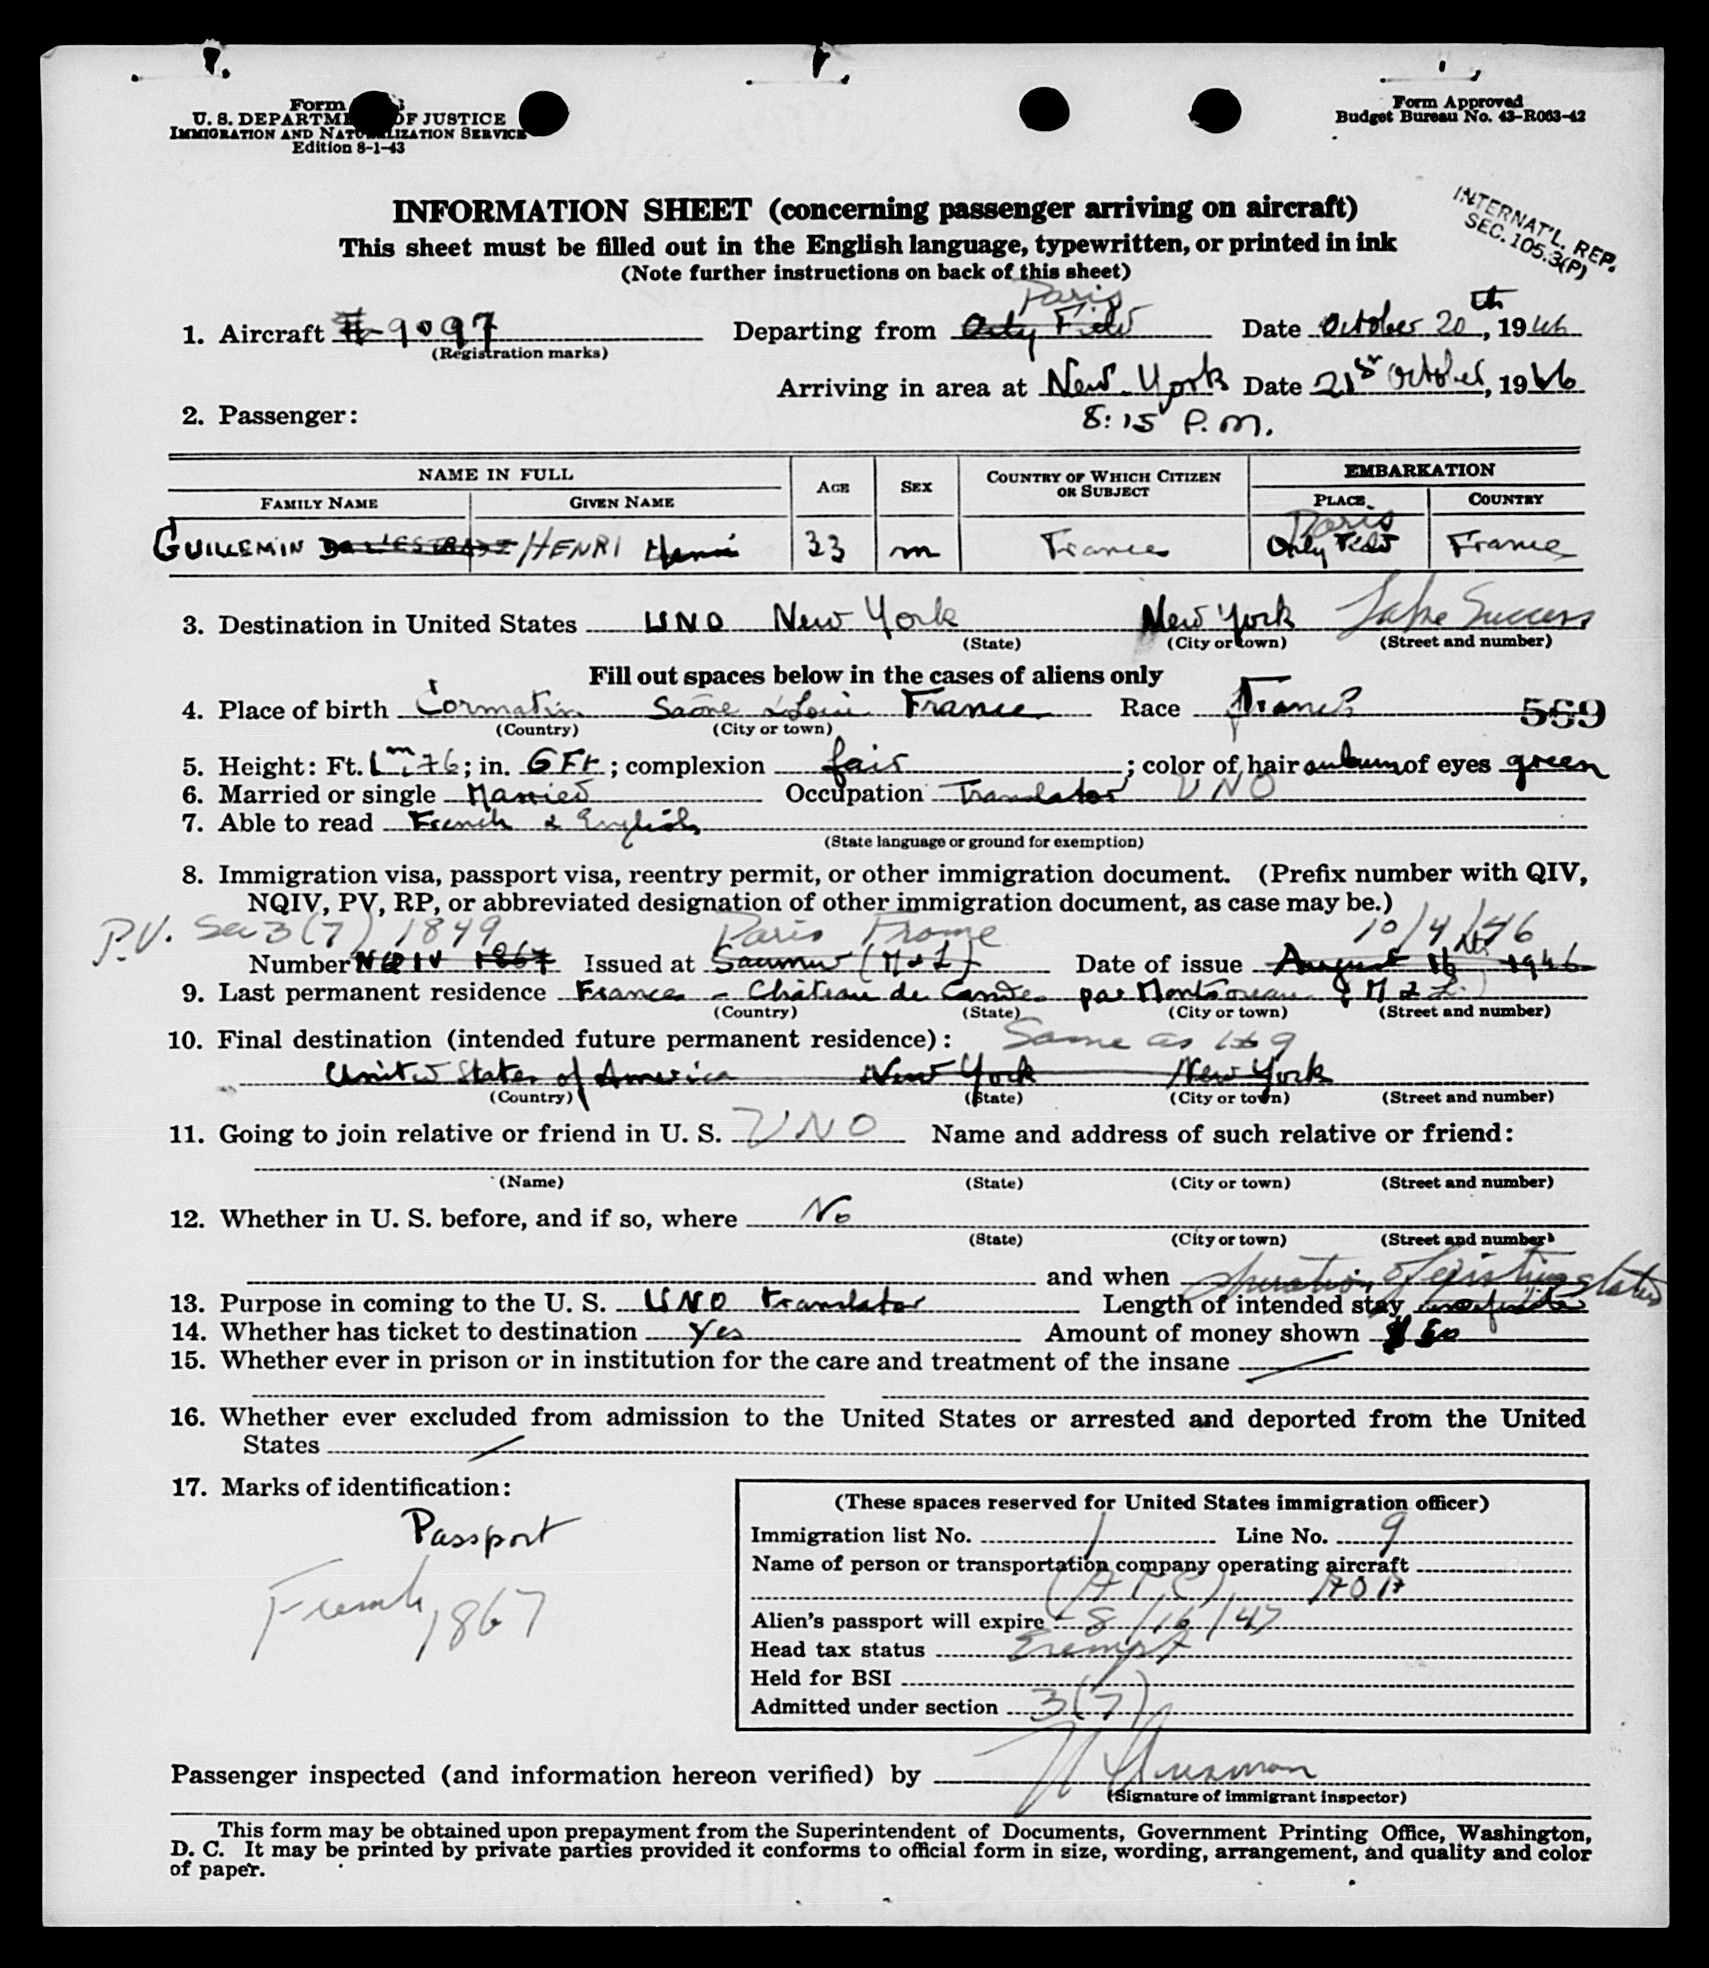 Form
U. S. DEPARTMENT OF JUSTICE
IMMIGRATION AND NATURALIZATION SERVICE
Edition 8-1-43
Form Approved
Budget Bureau No. 43-R063-42
INTERNAT'L. REP.
SEC. 105.3(P)
INFORMATION SHEET (concerning passenger arriving on aircraft)
This sheet must be filled out in the English language, typewritten, or printed in ink
(Note further instructions on back of this sheet)
Paris
1. Aircraft 9097 Departing from Orly Field Date October 20th, 1946
(Registration marks)
Arriving in area at New York Date 21st October, 1946
2. Passenger: 8:15 P.M.
NAME IN FULL AGE SEX COUNTRY OF WHICH CITIZEN OR SUBJECT EMBARKATION
FAMILY NAME GIVEN NAME PLACE COUNTRY
Paris
GUILLEMIN HENRI Henri 33 m France Orly Field France
3. Destination in United States UNO New York New York Lake Success
(State) (City or town) (Street and number)
Fill out spaces below in the cases of aliens only
4. Place of birth Cormatin Saône & Loire France Race French 569
(Country) (City or town)
5. Height: Ft. 1m76; in. 6 Ft; complexion fair; color of hair auburn of eyes green
6. Married or single Married Occupation Translator UNO
7. Able to read French & English
(State language or ground for exemption)
8. Immigration visa, passport visa, reentry permit, or other immigration document. (Prefix number with QIV,
NQIV, PV, RP, or abbreviated designation of other immigration document, as case may be.)
P.V. Sec 3(7) 1849 Paris France 10/4/46
Number NQIV 1867 Issued at Saumur (M & L) Date of issue August 16th 1946
9. Last permanent residence France - Château de Candes par Montsoreau (M & L)
(Country) (State) (City or town) (Street and number)
10. Final destination (intended future permanent residence): Same as 9
United States of America New York New York
(Country) (State) (City or town) (Street and number)
11. Going to join relative or friend in U. S. UNO Name and address of such relative or friend:
(Name) (State) (City or town) (Street and number)
12. Whether in U. S. before, and if so, where No
(State) (City or town) (Street and number)
and when
duration of existing status
13. Purpose in coming to the U. S. UNO translator Length of intended stay indefinite
14. Whether has ticket to destination Yes Amount of money shown $ 50
15. Whether ever in prison or in institution for the care and treatment of the insane /
16. Whether ever excluded from admission to the United States or arrested and deported from the United
States /
17. Marks of identification:
Passport
French 1867
(These spaces reserved for United States immigration officer)
Immigration list No. 1 Line No. 9
Name of person or transportation company operating aircraft
(ATC) AOA
Alien's passport will expire 8/16/47
Head tax status Exempt
Held for BSI
Admitted under section 3(7)
Passenger inspected (and information hereon verified) by
(Signature of immigrant inspector)
This form may be obtained upon prepayment from the Superintendent of Documents, Government Printing Office, Washington,
D. C. It may be printed by private parties provided it conforms to official form in size, wording, arrangement, and quality and color
of paper.